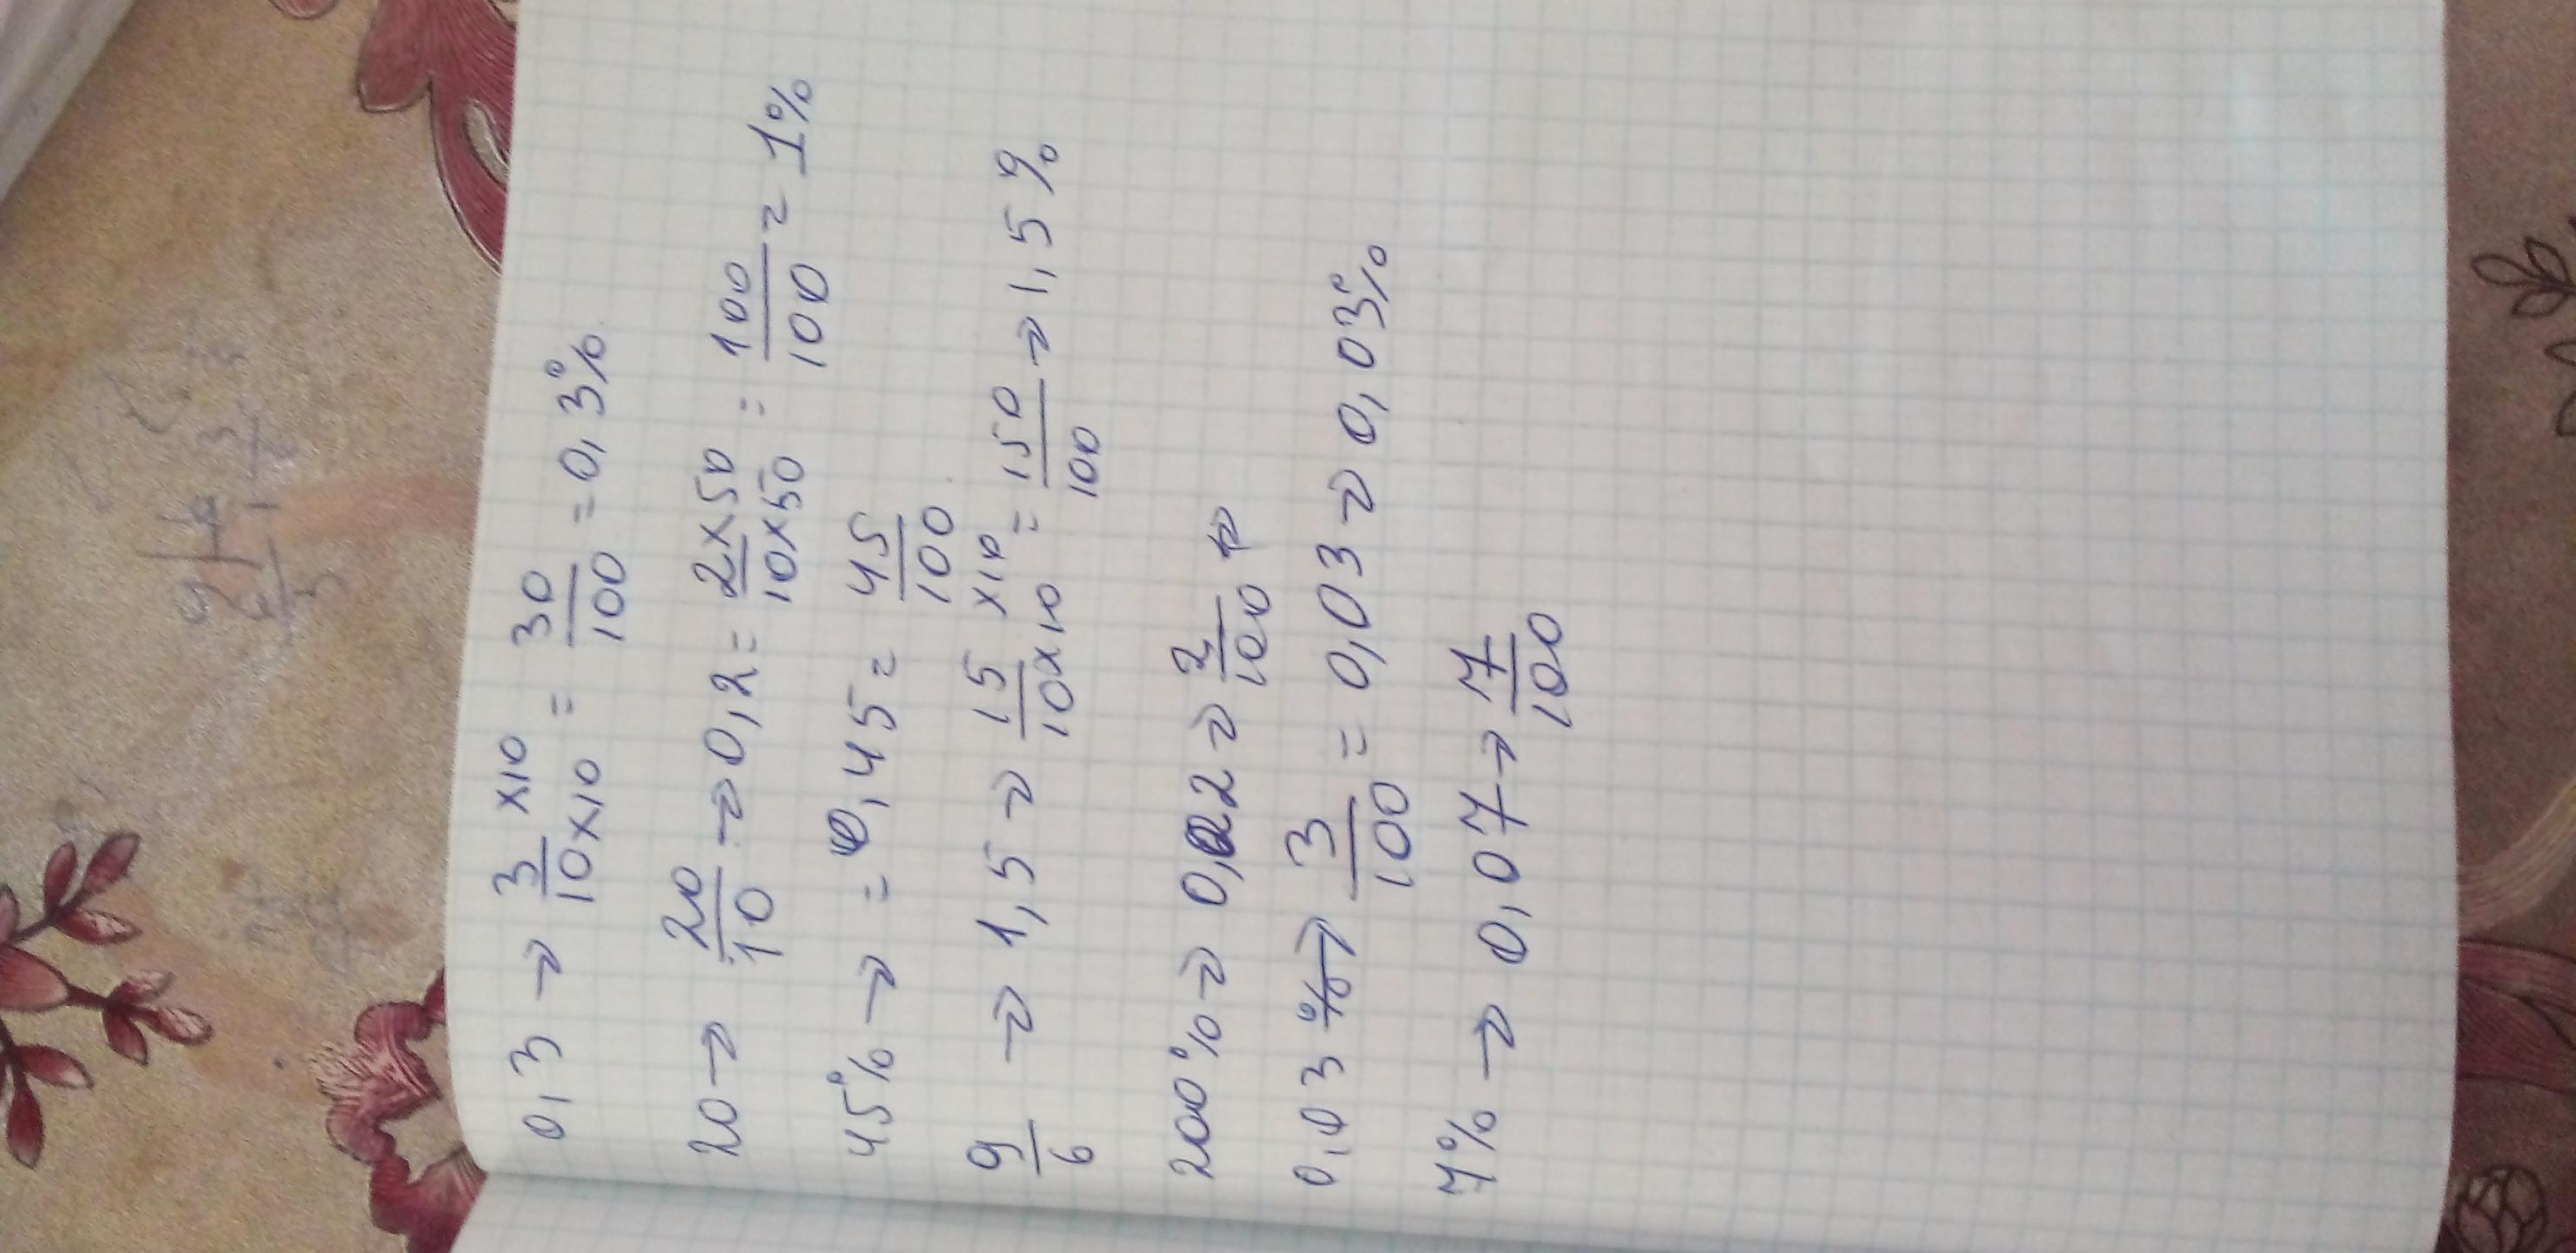 0,3 → 3/10 ×10/×10 = 30/100 = 0,3%
20 → 20/10 → 0,2 = 2×50/10×50 = 100/100 = 1%
45% → = 0,45 = 45/100
9/6 → 1,5 → 15/10 ×10/×10 = 150/100 → 1,5%
200% → 0,022 → 2/100
0,03 → 3/100 = 0,03 → 0,03%
7% → 0,07 → 7/100